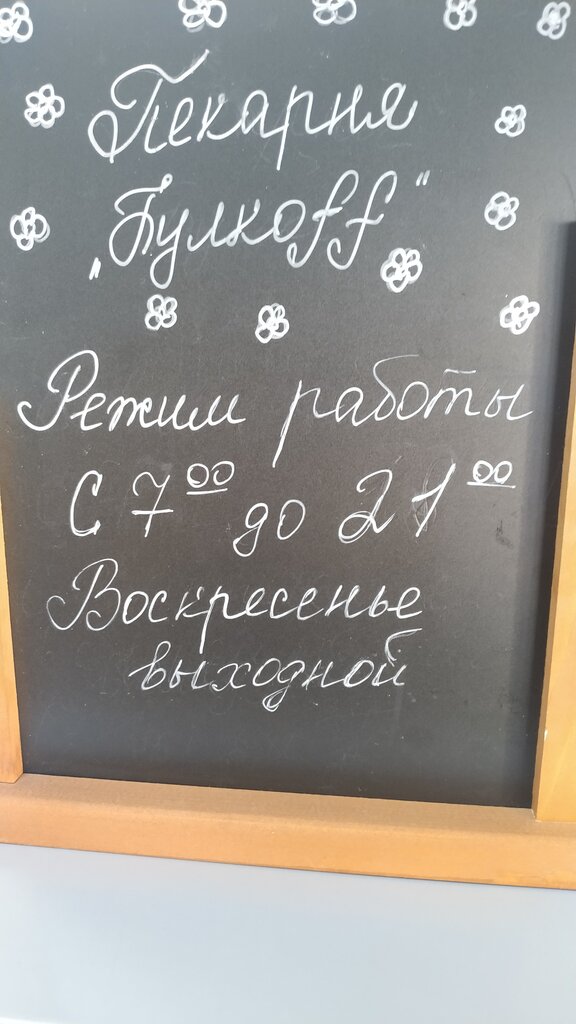 Пекарня
„Булкоff"
Режим работы
С 7 00 до 21 00
Воскресенье
выходной